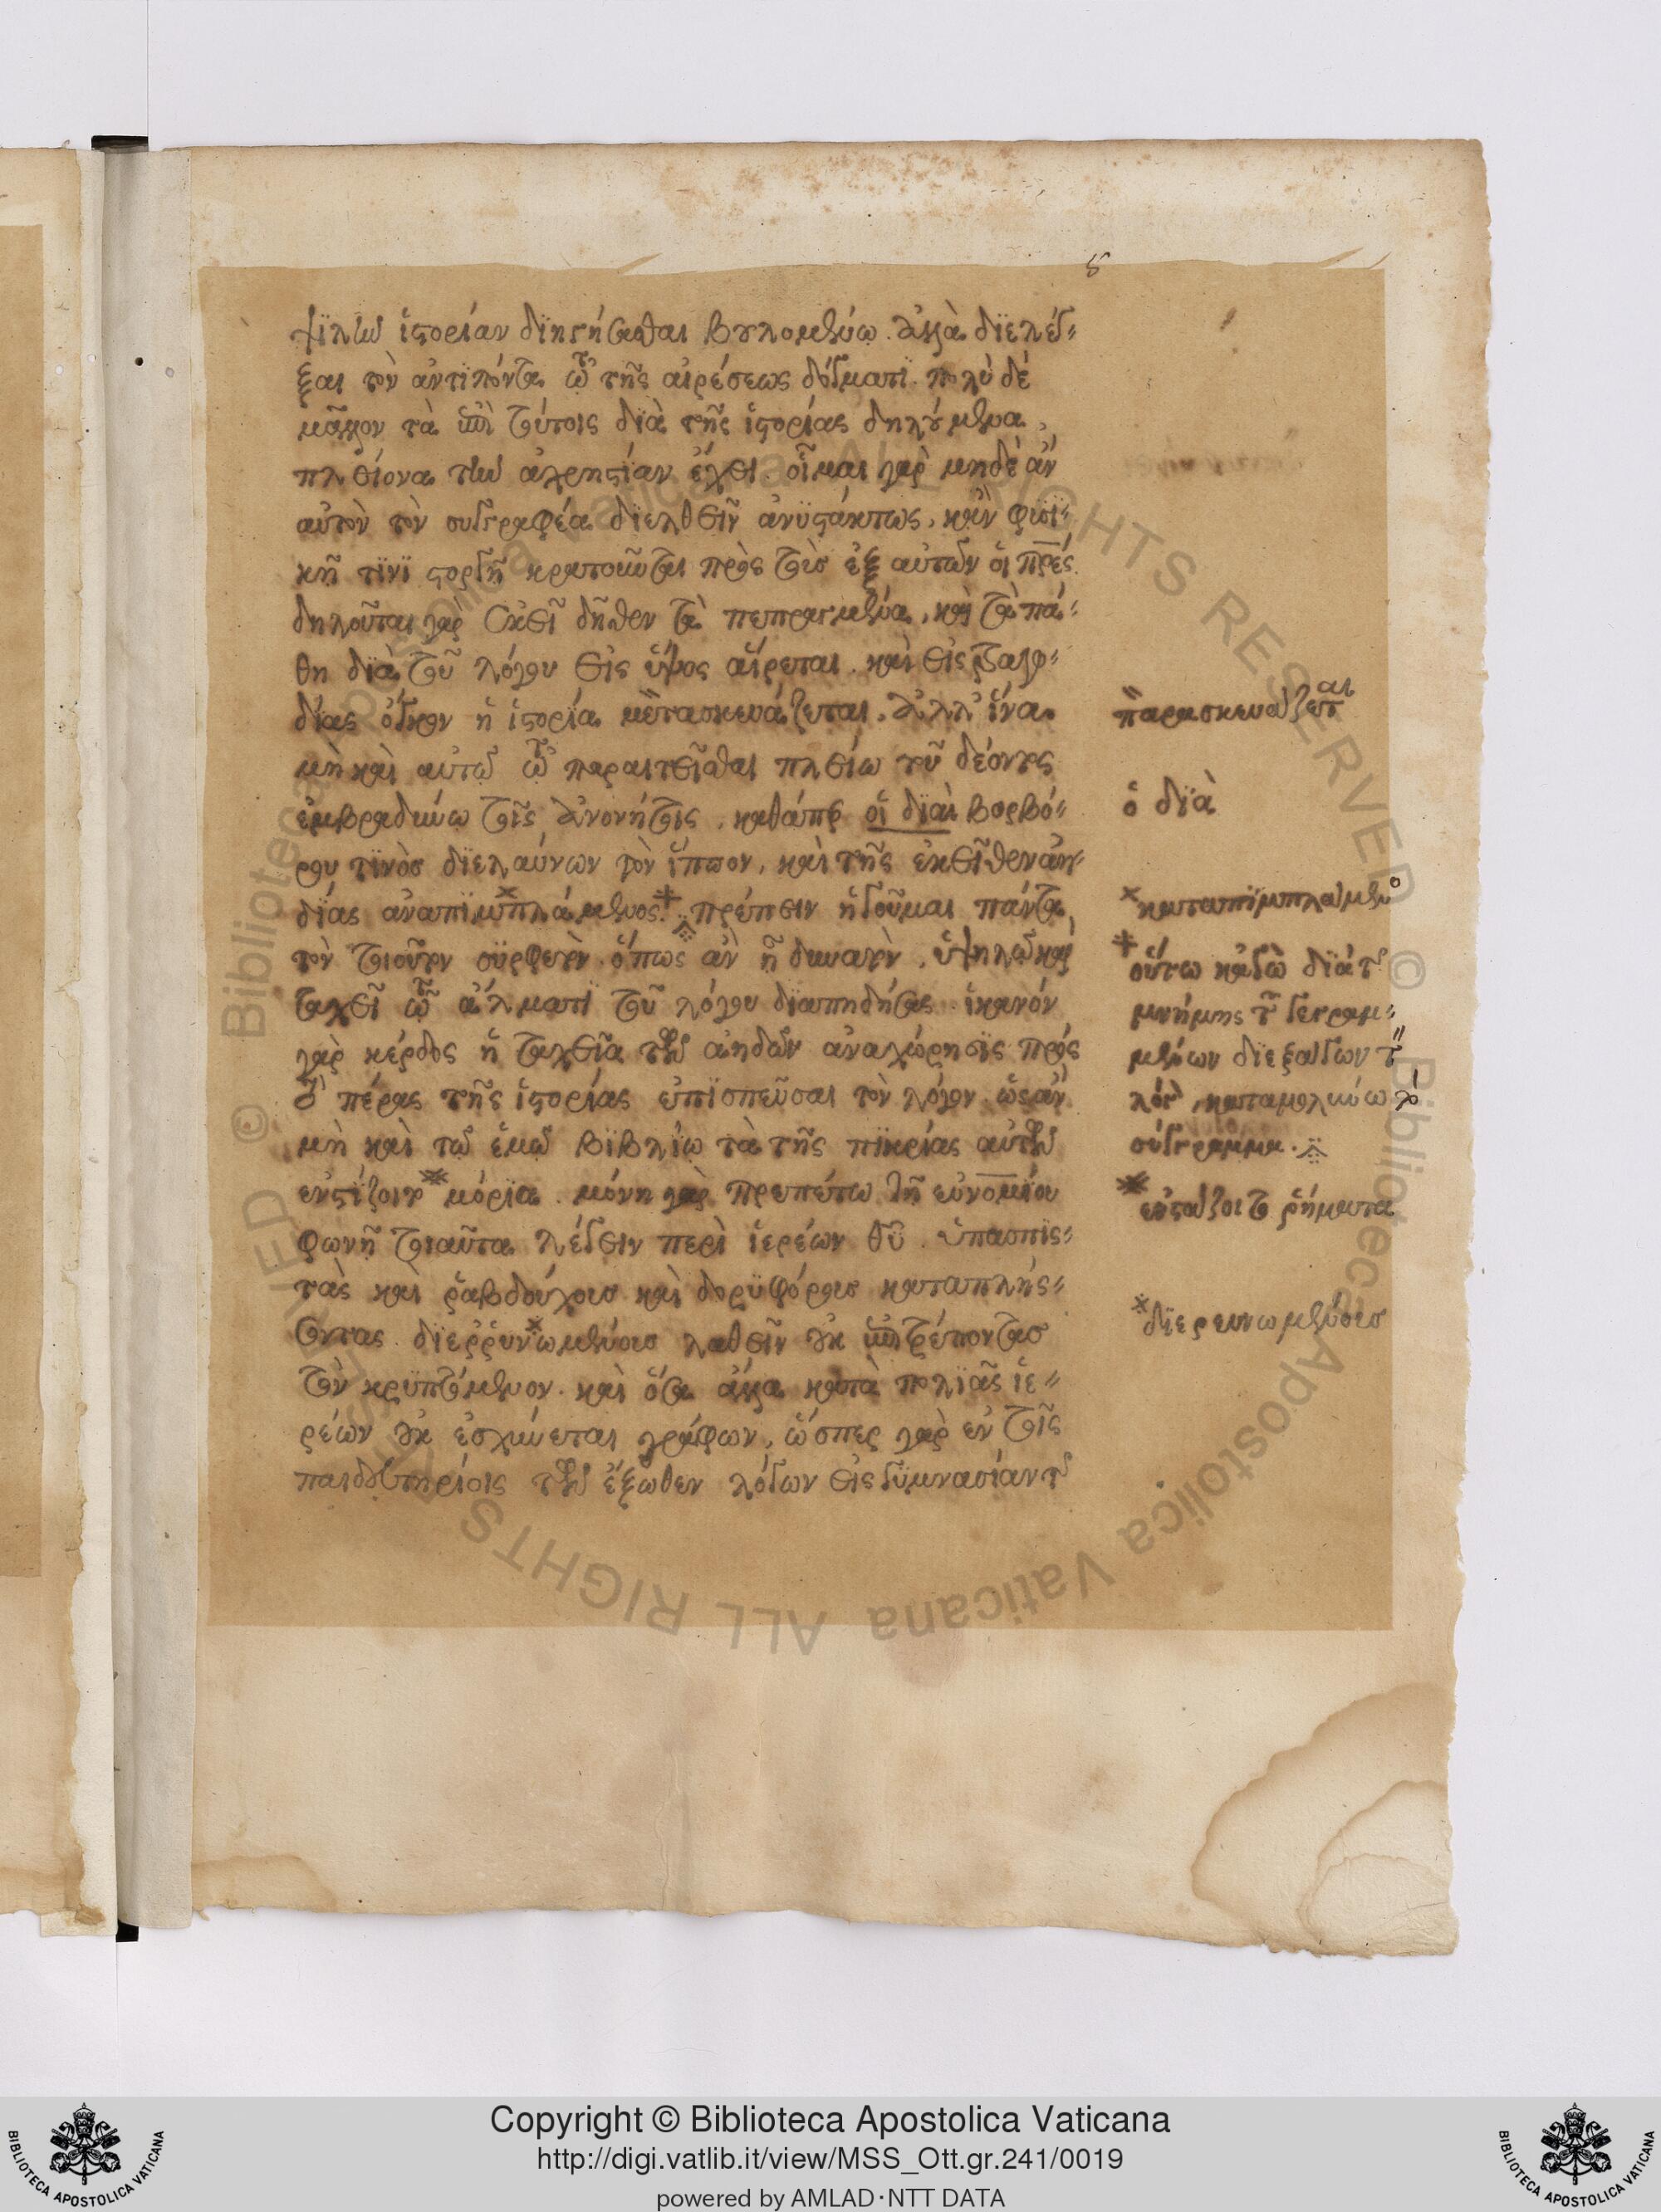 8
ψϊλὴν ἱστορίαν δϊηγήσασθαι βουλομένω. ἀλλὰ διελέγ-
ξαι τὸν ἀντιπόντα τῶ τῆς αἱρέσεως δόγματι. πολὺ δὲ
μᾶλλον τὰ ἐπὶ τούτοις διὰ τῆς ἱστορίας δηλούμενα,
πλείονα τὴν ἀχρηστίαν ἔχει. οἶμαι γὰρ μηδὲ ἂν
αὐτὸν τὸν συγγραφέα διελθεῖν ἀνϋστάκτως, κἂν φυσϊ-
κῆ τινὶ στοργῆ κρατοῦνται πρὸς τοὺσ ἐξ αὐτῶν οἱ πρες
δηλοῦται γὰρ ἐκεῖ δῆθεν τὰ πεπραγμένα, καὶ τὰ πά-
θη διὰ τοῦ λόγου εἰς ὕψος αἴρεται. καὶ εἰς τραγω-
δίας ὄγκον ἡ ἱστορία μετασκευάζεται. ἀλλ' ἵνα
μὴ καὶ αὐτῶ τῶ παραιτεῖσθαι πλείω τοῦ δέοντος
ἐμβραδύνω τοῖς ἀνονήτοις, καθάπερ οἱ διὰ βορβό-
ρου τινὸσ διελαύνων τὸν ἵππον, καὶ τῆς ἐκεῖθεν ἀη-
δίας ἀναπϊμπλάμενος. πρέπειν ἡγοῦμαι πάντα
τὸν τοιοῦτον συρφετὸν ὅπως ἂν ἦ δυνατὸν, ὑψηλῶ καὶ
ταχεῖ τῶ ἅλματϊ τοῦ λόγου διαπηδήσας. ἱκανόν
γὰρ κέρδος ἡ ταχεῖα τῶν ἀηδῶν ἀναχώρησϊς πρὸς
τὸ πέρας τῆς ἱστορίας ἐπϊσπεῦσαι τὸν λόγον. ὡς ἂν
μὴ καὶ τῶ ἐμῶ βϊβλίω τὰ τῆς πϊκρίας αὐτῶν
ἐνστίζοιτο μόρϊα. μόνη γὰρ πρεπέτω τῆ εὐνομίου
φωνῆ τοιαῦτα λέγειν περὶ ἱερέων θῦ. ὑπασπισ-
τὰς καὶ ῥαβδούχουσ καὶ δορϋφόρουσ καταπλήσ-
σοντας. διερρυνωμένουσ λαθεῖν οὐκ ἐπιτρέποντασ
τὸν κρϋπτόμενον. καὶ ὅσα ἄλλα κατὰ πολϊᾶς ἱε-
ρέων οὐκ ἐσχύνεται γράφων, ὥσπερ γὰρ ἐν τοῖς
παιδευτηρίοις τῶν ἔξωθεν λόγων εἰς γϋμνασίαν τ
παρασκευάζεται
ὁ διὰ
καταπϊμπλάμενο
οὕτω κἀγὼ διὰ τ
μνήμης τ γεγραμ-
μένων διεξάγων τ
λόγ, καταμολύνω τὸ
σύγγραμμα.
ἐνστάζοιτο ῥήματα
διερευνωμένουσ
Copyright © Biblioteca Apostolica Vaticana
http://digi.vatlib.it/view/MSS_Ott.gr.241/0019
powered by AMLAD·NTT DATA